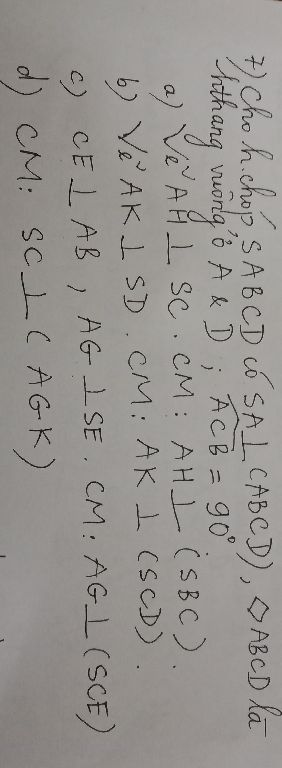 7) Cho h.chóp SABCD có SA⊥(ABCD), ◇ABCD là
hthang vuông ở A & D ; ACB = 90°
a) Vẽ AH⊥ SC. CM: AH⊥ (SBC).
b) Vẽ AK⊥ SD. CM: AK⊥ (SCD).
c) CE⊥ AB, AG⊥SE. CM: AG⊥(SCE)
d) CM: SC⊥ (AGK)